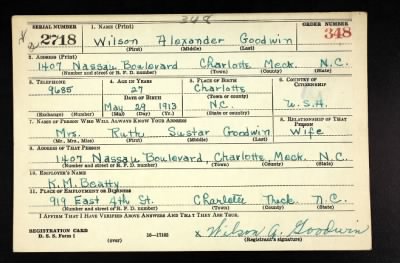 348
SERIAL NUMBER 1. NAME (Print) ORDER NUMBER
2718 Wilson Alexander Goodwin 348
(First) (Middle) (Last)
2. ADDRESS (Print)
1407 Nassau Boulevard Charlotte Meck. N.C.
(Number and street or R. F. D. number) (Town) (County) (State)
3. TELEPHONE 4. AGE IN YEARS 5. PLACE OF BIRTH 6. COUNTRY OF CITIZENSHIP
9685 27 Charlotte
DATE OF BIRTH (Town or county)
May 29 1913 N.C. U.S.A.
(Exchange) (Number) (Mo.) (Day) (Yr.) (State or country)
7. NAME OF PERSON WHO WILL ALWAYS KNOW YOUR ADDRESS 8. RELATIONSHIP OF THAT PERSON
Mrs. Ruth Sustar Goodwin Wife
(Mr., Mrs., Miss) (First) (Middle) (Last)
9. ADDRESS OF THAT PERSON
1407 Nassau Boulevard, Charlotte, Meck. N.C.
(Number and street or R. F. D. number) (Town) (County) (State)
10. EMPLOYER'S NAME
K.M. Beatty
11. PLACE OF EMPLOYMENT OR BUSINESS
919 East 4th St. Charlotte Meck. N.C.
(Number and street or R. F. D. number) (Town) (County) (State)
I AFFIRM THAT I HAVE VERIFIED ABOVE ANSWERS AND THAT THEY ARE TRUE.
REGISTRATION CARD
D. S. S. Form 1 (over) 16—17105 x Wilson A. Goodwin
(Registrant's signature)